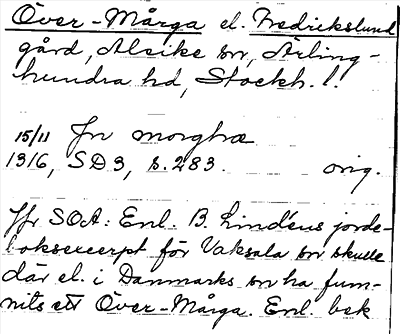 Över-Mårga el. Fredrikslund
gård, Alsike sn, Ärling-
hundra hd, Stockh. l.
15/11 Jn morghæ
1316, SD 3, s. 283. orig.
Jfr SOÄ: Enl. B. Lindéns jorde-
boksexcerpt för Vaksala sn skulle
där el. i Danmarks sn ha fum-
nits ett Över-Mårga. Enl. bek